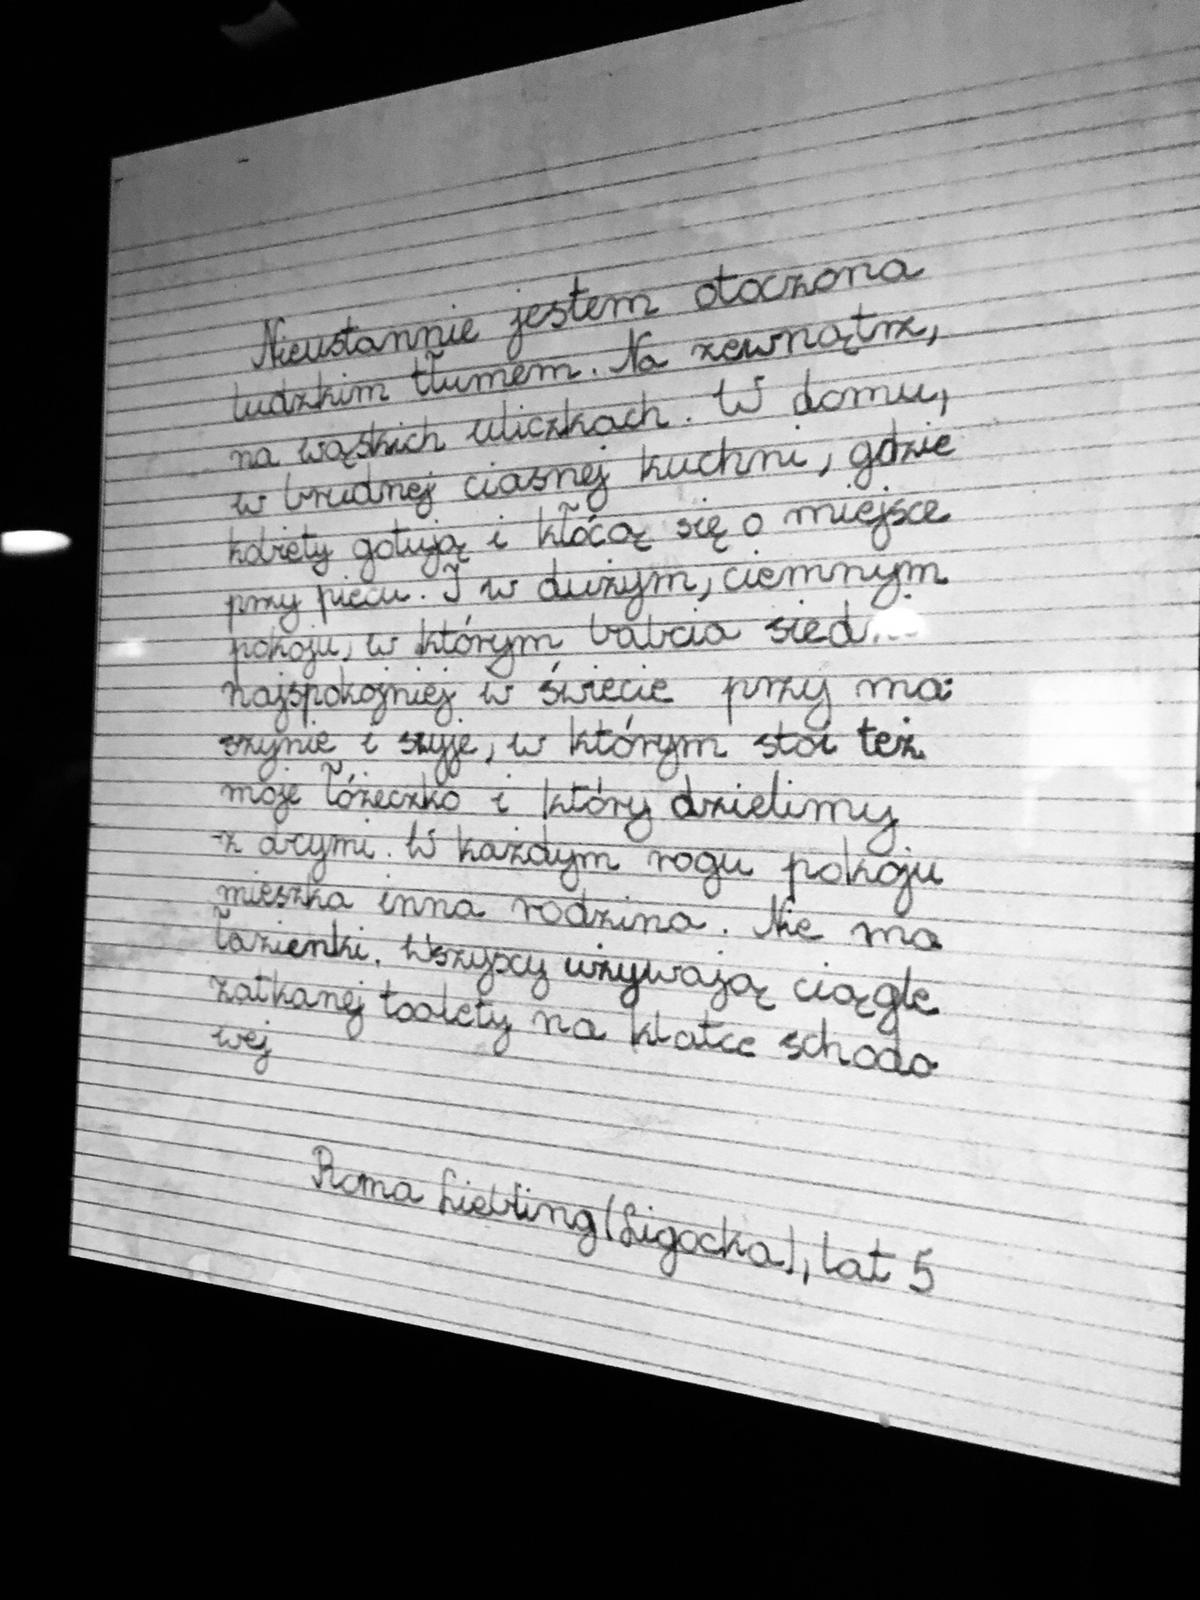 Nieustannie jestem otoczona
ludzkim tłumem. Na zewnątrz,
na wąskich uliczkach. W domu,
w brudnej ciasnej kuchni, gdzie
kobiety gotują i kłócą się o miejsce
przy piecu. I w dużym, ciemnym
pokoju, w którym babcia
najspokojniej w świecie przy ma-
szynie i szyje, w którym stoi też
moje łóżeczko i który dzielimy
z drymi. W każdym rogu pokoju
mieszka inna rodzina. Nie ma
łazienki. Wszyscy używają ciągle
zatkanej toalety na klatce schodo
wej
Roma Liebling (Ligocka), lat 5